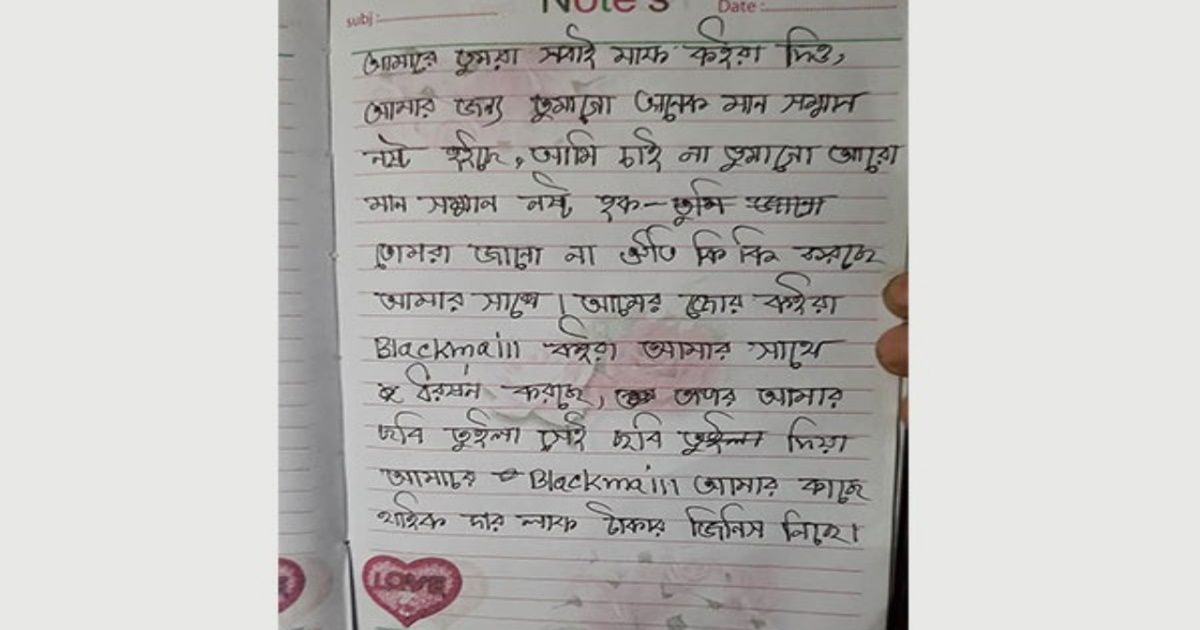 Note's
subj : Date :
আমারে তুমরা সবাই মাফ কইরা দিও,
আমার জন্য তুমানো অনেক মান সম্মান
নষ্ট হইছে, আমি চাই না তুমানো আরো
মান সম্মান নষ্ট হক— তুমি জানো
তোমরা জানো না কি কি করছে
আমার সাথে। আমের জোর কইরা
Blackmaill কইরা আমার সাথে
করছে, তাপর আমার
ছবি তুইলা সেই ছবি তুইলা দিয়া
আমারে Blackmaill আমার কাছে
থাইক চার লাক টাকার জিনিস নিছে।
LOVE